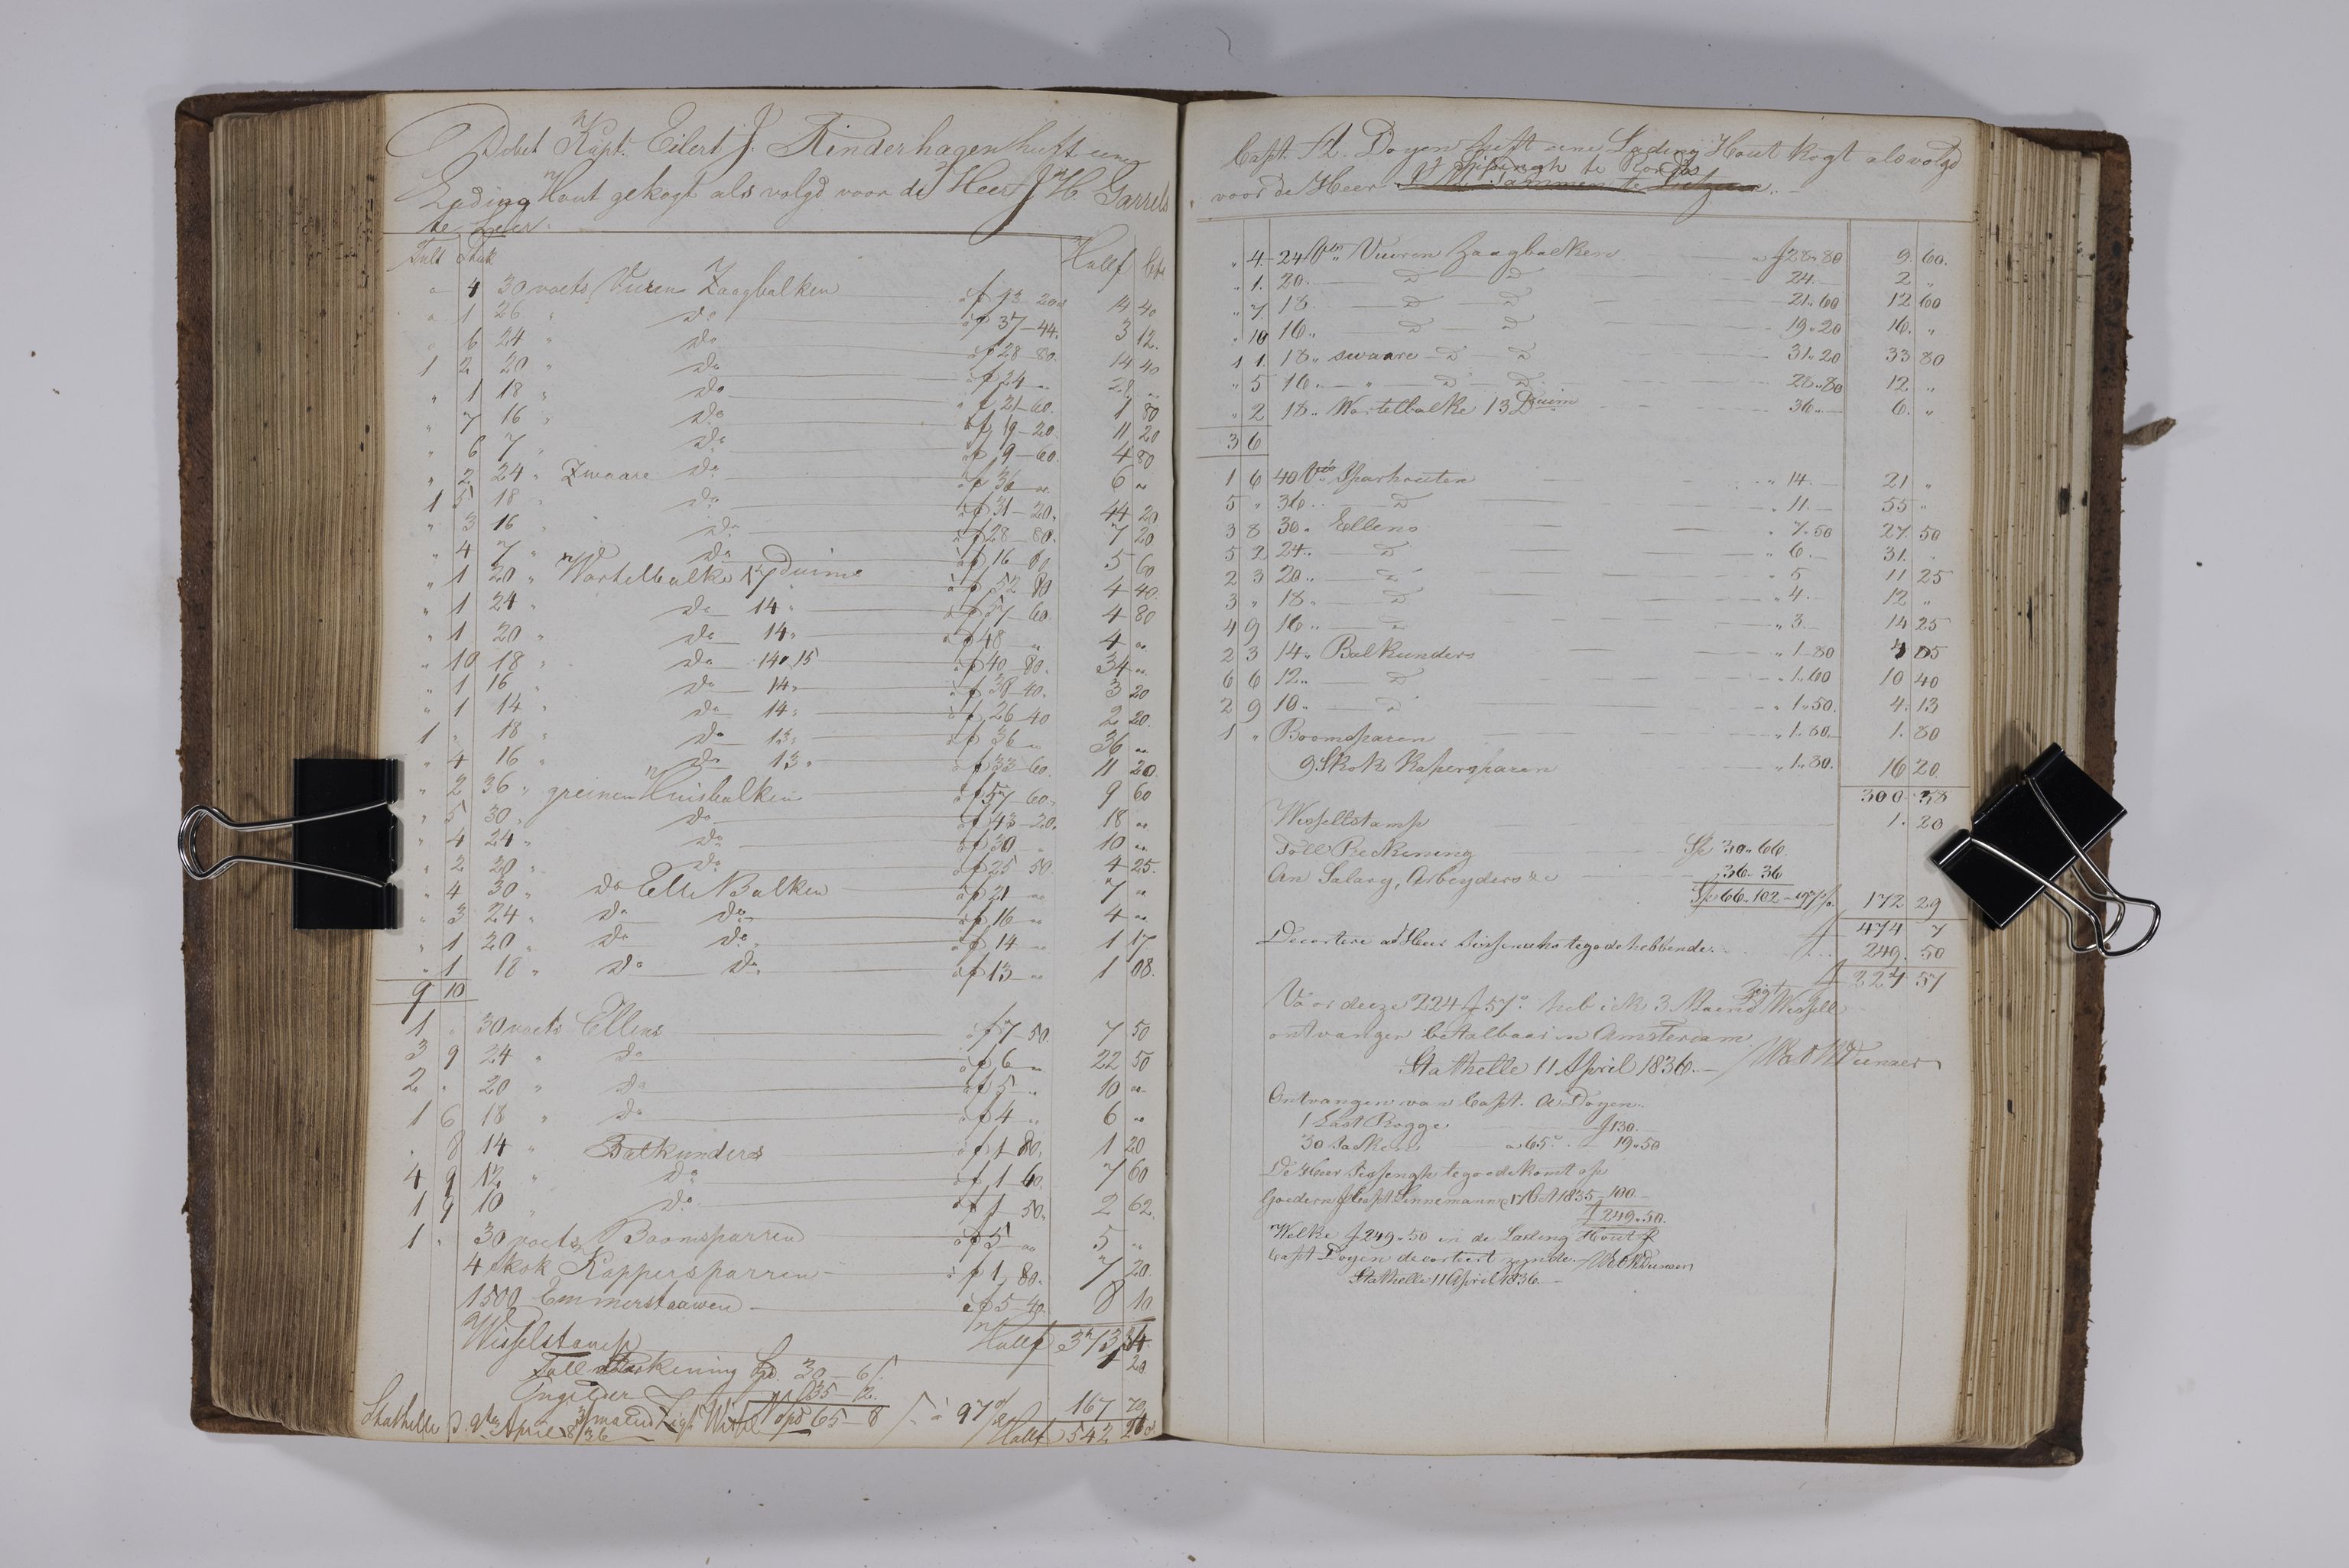 Debet Kapt. Eilert J. Rinderhagen heeft eene
Lading Hout gekogt als volgd voor de Heer J. H. Garrels
te Leer.
Tult Stuk Hollf Cts
" 4 30 voets Vuren Zaagbalken á f 43-20 14 40
" 1 26 " do á f 37-44. 3 12.
" 6 24 " do á f 28-80. 14 40
1 2 20 " do á f 24-" 28 "
" 1 18 " do á f 21-60. 1 80
" 7 16 " do á f 19-20. 11 20
" 6 7 " do á f 9-60. 4 80
" 2 24 " Zwaare do á f 36-" 6 "
1 5 18 " do á f 31-20. 44 20
" 3 16 " do á f 28-80. 7 20
" 4 7 " do á f 16 80 5 60
" 1 20 " Wortelbalke 17 Duims á f 52 80 4 40.
" 1 24 " do 14 " á f 57-60. 4 80
" 1 20 " do 14 " á f 48 " 4 "
" 10 18 " do 14 á 15 á f 40-80. 34 "
" 1 16 " do 14 " á f 38-40. 3 20
" 1 14 " do 14 " á f 26-40 2 20.
1 " 18 " do 13 " á f 36 " 36 "
" 4 16 " do 13 " á f 33-60. 11 20.
" 2 36 " greinen Huisbalken á f 57-60. 9 60
" 5 30 " do á f 43-20. 18 "
" 4 24 " do á f 30 " 10 "
" 2 20 " do á f 25 50. 4 25.
" 4 30 " do Elle Balken á f 21 " 7 "
" 3 24 " do do á f 16 " 4 "
" 1 20 " do do á f 14 " 1 17
" 1 18 " do do á f 13 " 1 08.
9 10
1 " 30 voets Ellens á f 7-50. 7 50
3 9 24 " do á f 6 " 22 50
2 " 20 " do á f 5 " 10 "
1 6 18 " do á f 4 " 6 "
" 8 14 " Balkunders á f 1 80. 1 20
4 9 12 " do á f 1 60. 7 60
1 9 10 " do á f 1 50. 2 62.
1 " 30 voets Boomsparren á f 5 " 5 "
4 Skok Kappersparren á f 1, 80. 7 20.
1500 Emmerstaawen á f 5-40. 8 10
Hollf 373 34
Wisselstamp 1 20
Toll Reckening Sp. 30-6
35-2.
Spd 65-8 á 97 167 70
Stathelle d. 9te April 1836 3/maend Zigt Wissel Hollf 542 24
Capt. A. Doyen heeft eene Lading Hout kogt als volgd
te
voor de Heer
" 4 24 Vts Vuuren Zaagbalken " f 28"80 9. 60.
" 1. 20. D D 24. 2 "
" 7. 18 D D 21"60 12 60
" 10 16 " D D 19"20 16. "
1 1. 18 " swaare D D 31"20 33 80
" 5 16 " " D D 28"80 12 "
" 2 18 " Wortelbalke 13 Duim 36" 6. "
3 6
1 6 40 Vts Sparhouten " 14. 21 "
5 " 36 " D " 11. 55 "
3 8 30 " Ellens " 7"50 27. 50
5 2 24 " D " 6. 31. "
2 3 20 " D " 5 11 25
3 " 18 " D " 4. 12 "
4 9 16 " D " 3. 14 25
2 3 14 " Balkunders " 1"80 4 05
6 6 12 " D " 1"60 10 40
2 9 10 " D " 1"50. 4. 13
1 " Boomsparen " 1"80. 1. 80
9 Skok Kapersparen " 1"80. 16 20
300 58
Wissellstamp 1. 20
Toll Reckening Sp 30"66.
An Salary, Arbeyders &c 36"36
Sp 66.102 - 97 172 29
f 474 7
Decortere de Heer tegoedehebbende. 249. 50
f 224 57
Voor deeze 224 f 57 heb ick 3 Maend Zigt Wissell
ontvangen betalbaar in Amsterdam
Stathelle 11 April 1836.
Ontvangen van Capt. A Doyen.
1 Last Rogge f 130.
30 a 65 19"50
De Heer tegoedekomt op
Goederen Capt Linnemann 1835 100
f 249"50.
Welke f 249"50 in de Lading Hout
Capt Doyen decorteert zynde.
Stathelle 11 April 1836.